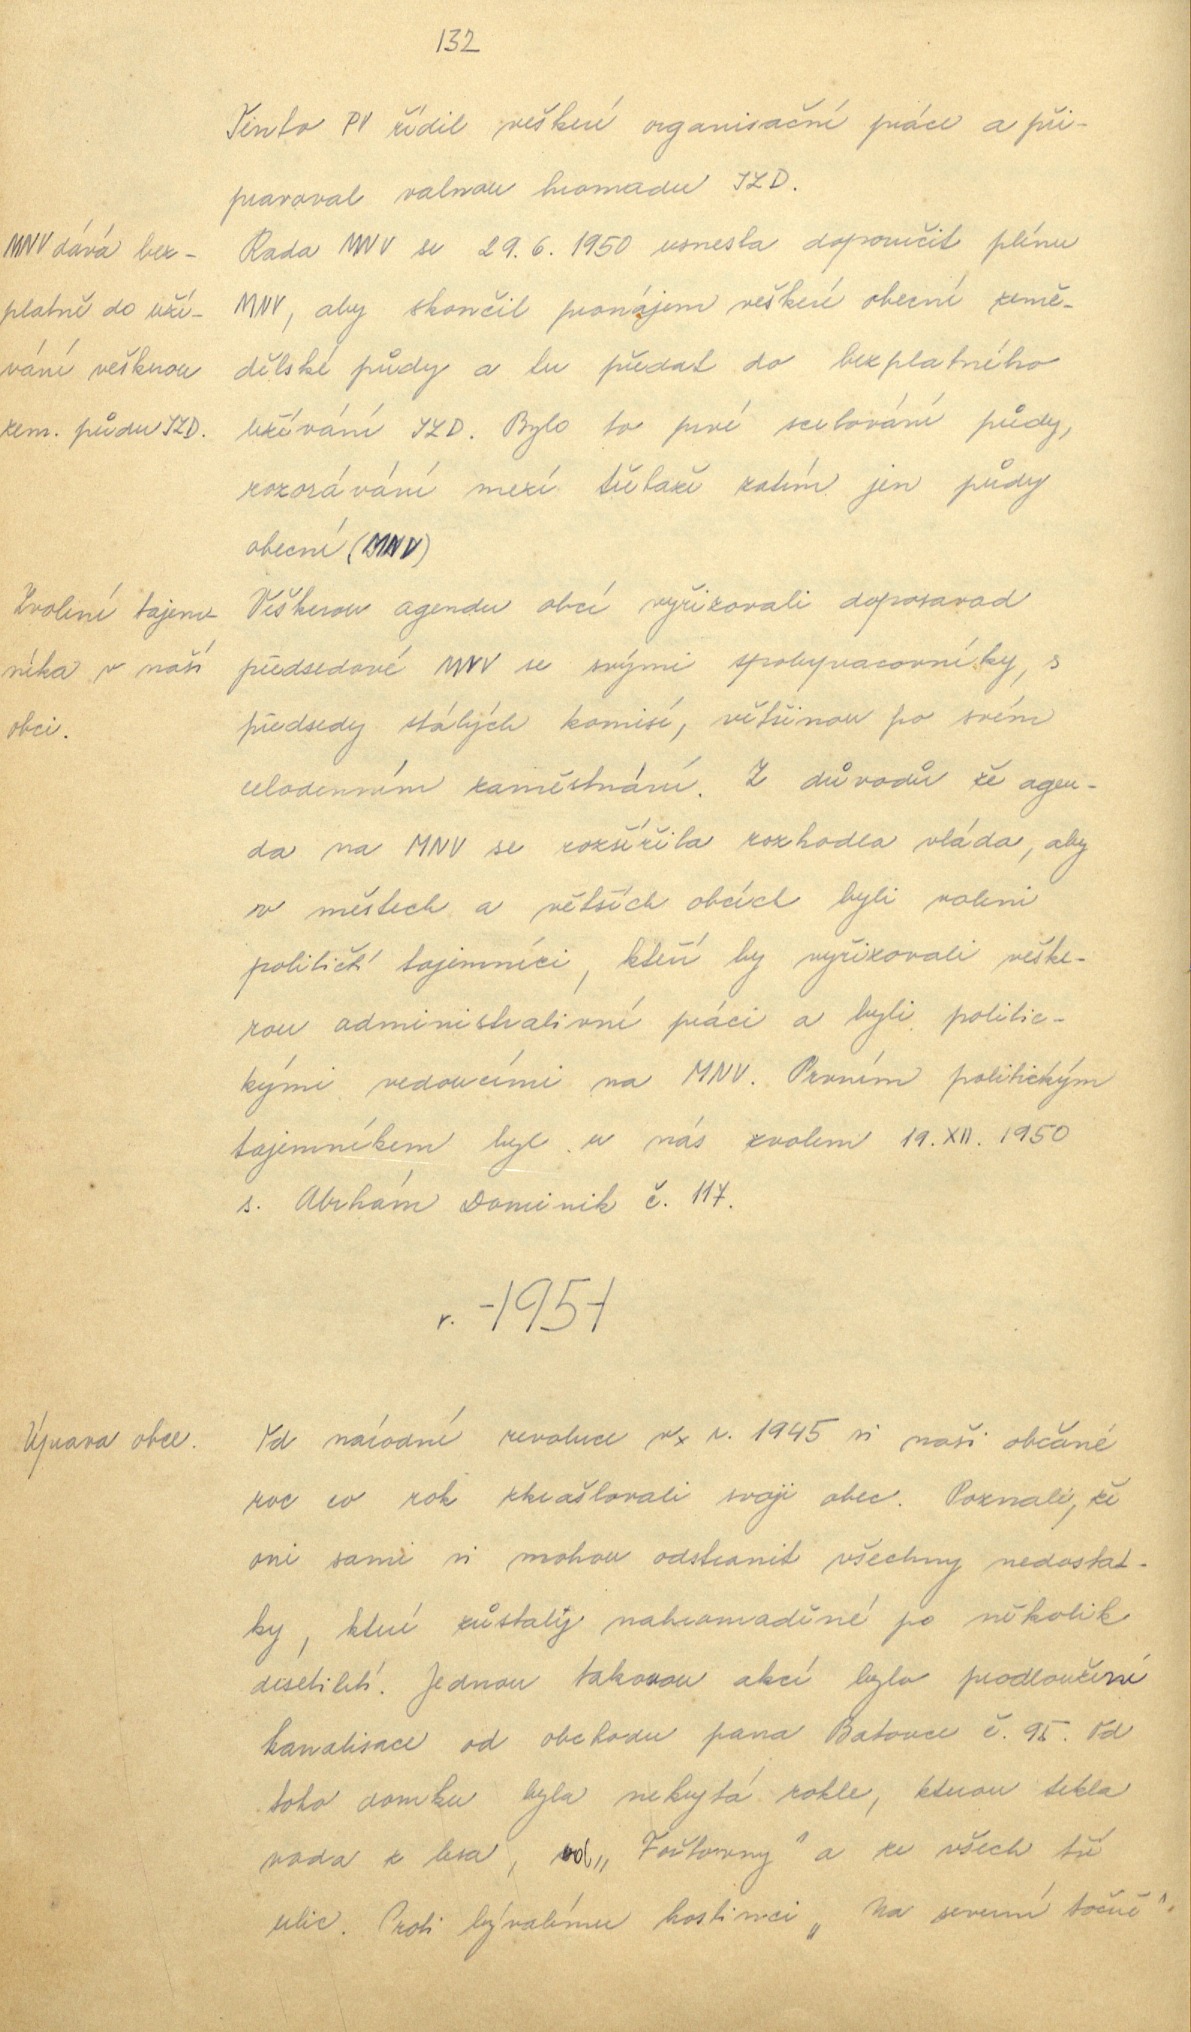 132
Tento PV řídil veškeré organisační práce a při-
pravoval valnou hromadu JZD.
MNV dává bez-
platně do uží-
vání veškerou
zem. půdu JZD.
Rada MNV se 29. 6. 1950 usnesla doporučit plénu
MNV, aby skončil pronájem veškeré obecní země-
dělské půdy a tu předat do bezplatného
užívání JZD. Bylo to prvé scelování půdy,
rozorávání mezí třebaže zatím jen půdy
obecní (MNV)
Zvolení tajem-
níka v naší
obci.
Veškerou agendu obcí vyřizovali doposavad
předsedové MNV se svými spolupracovníky, s
předsedy stálých komisí, většinou po svém
celodenním zaměstnání. Z důvodů že agen-
da na MNV se rozšířila rozhodla vláda, aby
v městech a větších obcích byli voleni
političtí tajemníci, kteří by vyřizovali veške-
rou administrativní práci a byli politic-
kými vedoucími na MNV. Prvním politickým
tajemníkem byl u nás zvolen 19. XII. 1950
s. Abrhám Dominik č. 117.
r. 1951
Úprava obce.
Od národní revoluce v r. 1945 si naši občané
rok co rok zkrášlovali svoji obec. Poznali, že
oni sami si mohou odstranit všechny nedostat-
ky, které zůstaly nahromaděné po několik
desetiletí. Jednou takovou akcí bylo prodloužení
kanalisace od obchodu pana Batovce č. 95. Od
toho domku byla nekrytá rokle, kterou tekla
voda z lesa, od „Foštovny" a ze všech tří
ulic. Proti bývalému hostinci „Na severní točně".